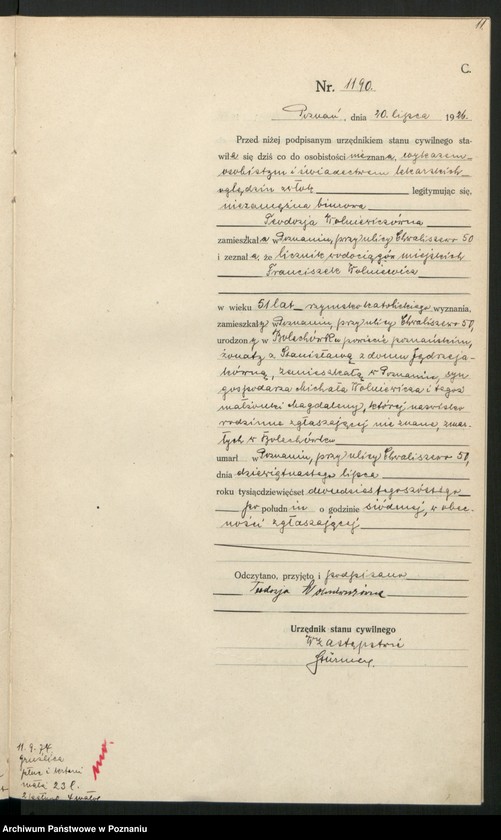 11
C.
Nr. 1190.
Poznań, dnia 20. lipca 1926.
Przed niżej podpisanym urzędnikiem stanu cywilnego sta-
wiła się dziś co do osobistości nieznana, wykazem
osobistym i świadectwem lekarskich
oględzin zwłok legitymując się,
niezamężna biurowa
Teodozja Wolniewiczówna
zamieszkała w Poznaniu, przy ulicy Chwaliszewo 50
i zeznała, że licznik wodociągów miejskich
Franciszek Wolniewicz
w wieku 51 lat rzymskokatolickiego wyznania,
zamieszkały w Poznaniu, przy ulicy Chwaliszewo 50,
urodzony w Bolechówku powiecie poznańskim,
żonaty z Stanisławą z domu Jędrzeja-
kówną, zamieszkałą w Poznaniu, syn
gospodarza Michała Wolniewicza i tegoż
małżonki Magdaleny, której nazwisko
rodzinne zgłaszającej nie znane, zmar-
łych w Bolechówku
umarł w Poznaniu, przy ulicy Chwaliszewo 50,
dnia dziewiętnastego lipca
roku tysiącdziewięćset dwudziestegoszóstego
po południu o godzinie siódmej, w obec-
ności zgłaszającej
Odczytano, przyjęto i podpisano
Teodozja Wolniewiczówna
Urzędnik stanu cywilnego
W zastępstwie
11. 9. 74.
gruźlica
płuc i krtani
23 l.
Archiwum Państwowe w Poznaniu